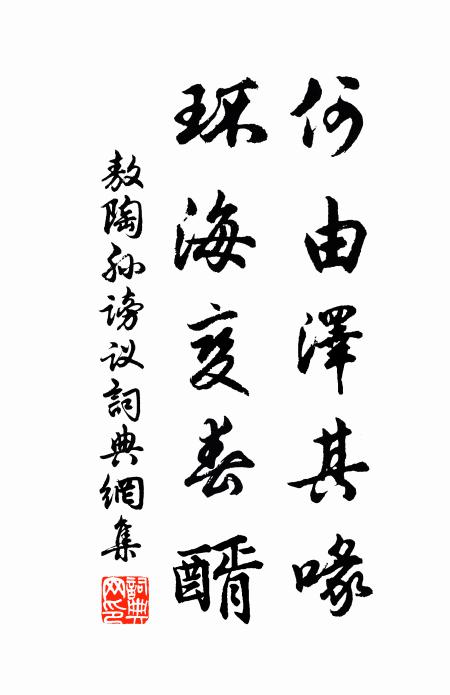 何由澤其喙
环海变春醑
敖陶孙谤议詞典網集
詞典网印